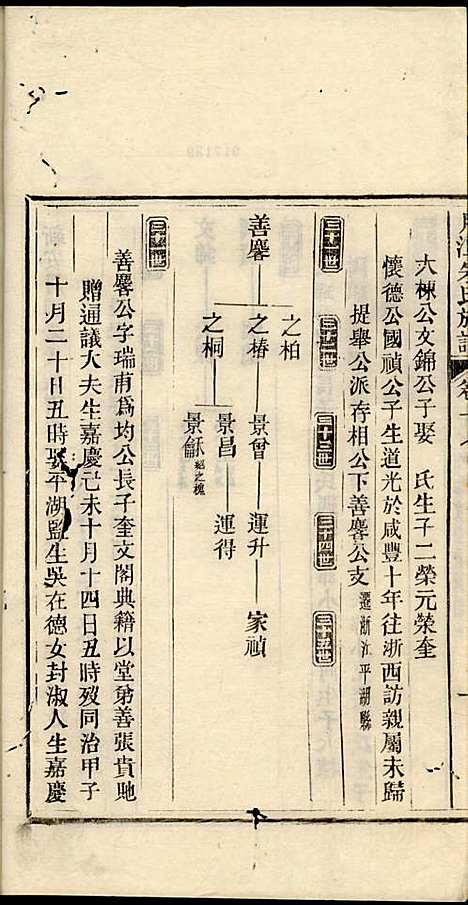 大棟公文錦公子娶　氏生子二榮元榮奎
懷德公國禎公子生道光於咸豐十年往浙西訪親屬未歸
提舉公派存相公下善麐公支遷浙江平湖縣
三十一世
三十二世
三十三世
三十四世
三十五世
善麐
之柏
之椿
景曾
運升
家禎
之桐
景昌
運得
景龢紹之槐
三十一世
善麐公字瑞甫爲均公長子奎文閣典籍以堂弟善張貴貤
贈通議大夫生嘉慶己未十月十四日丑時歿同治甲子
十月二十日丑時娶平湖監生吳在德女封淑人生嘉慶